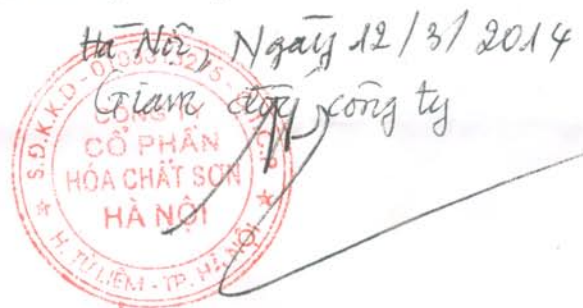 Hà Nội, Ngày 12/3/2014
Giám đốc công ty
S.Đ.K.K.D
CÔNG TY
CỔ PHẦN
HÓA CHẤT SƠN
HÀ NỘI
H. TỪ LIÊM - TP. HÀ NỘI